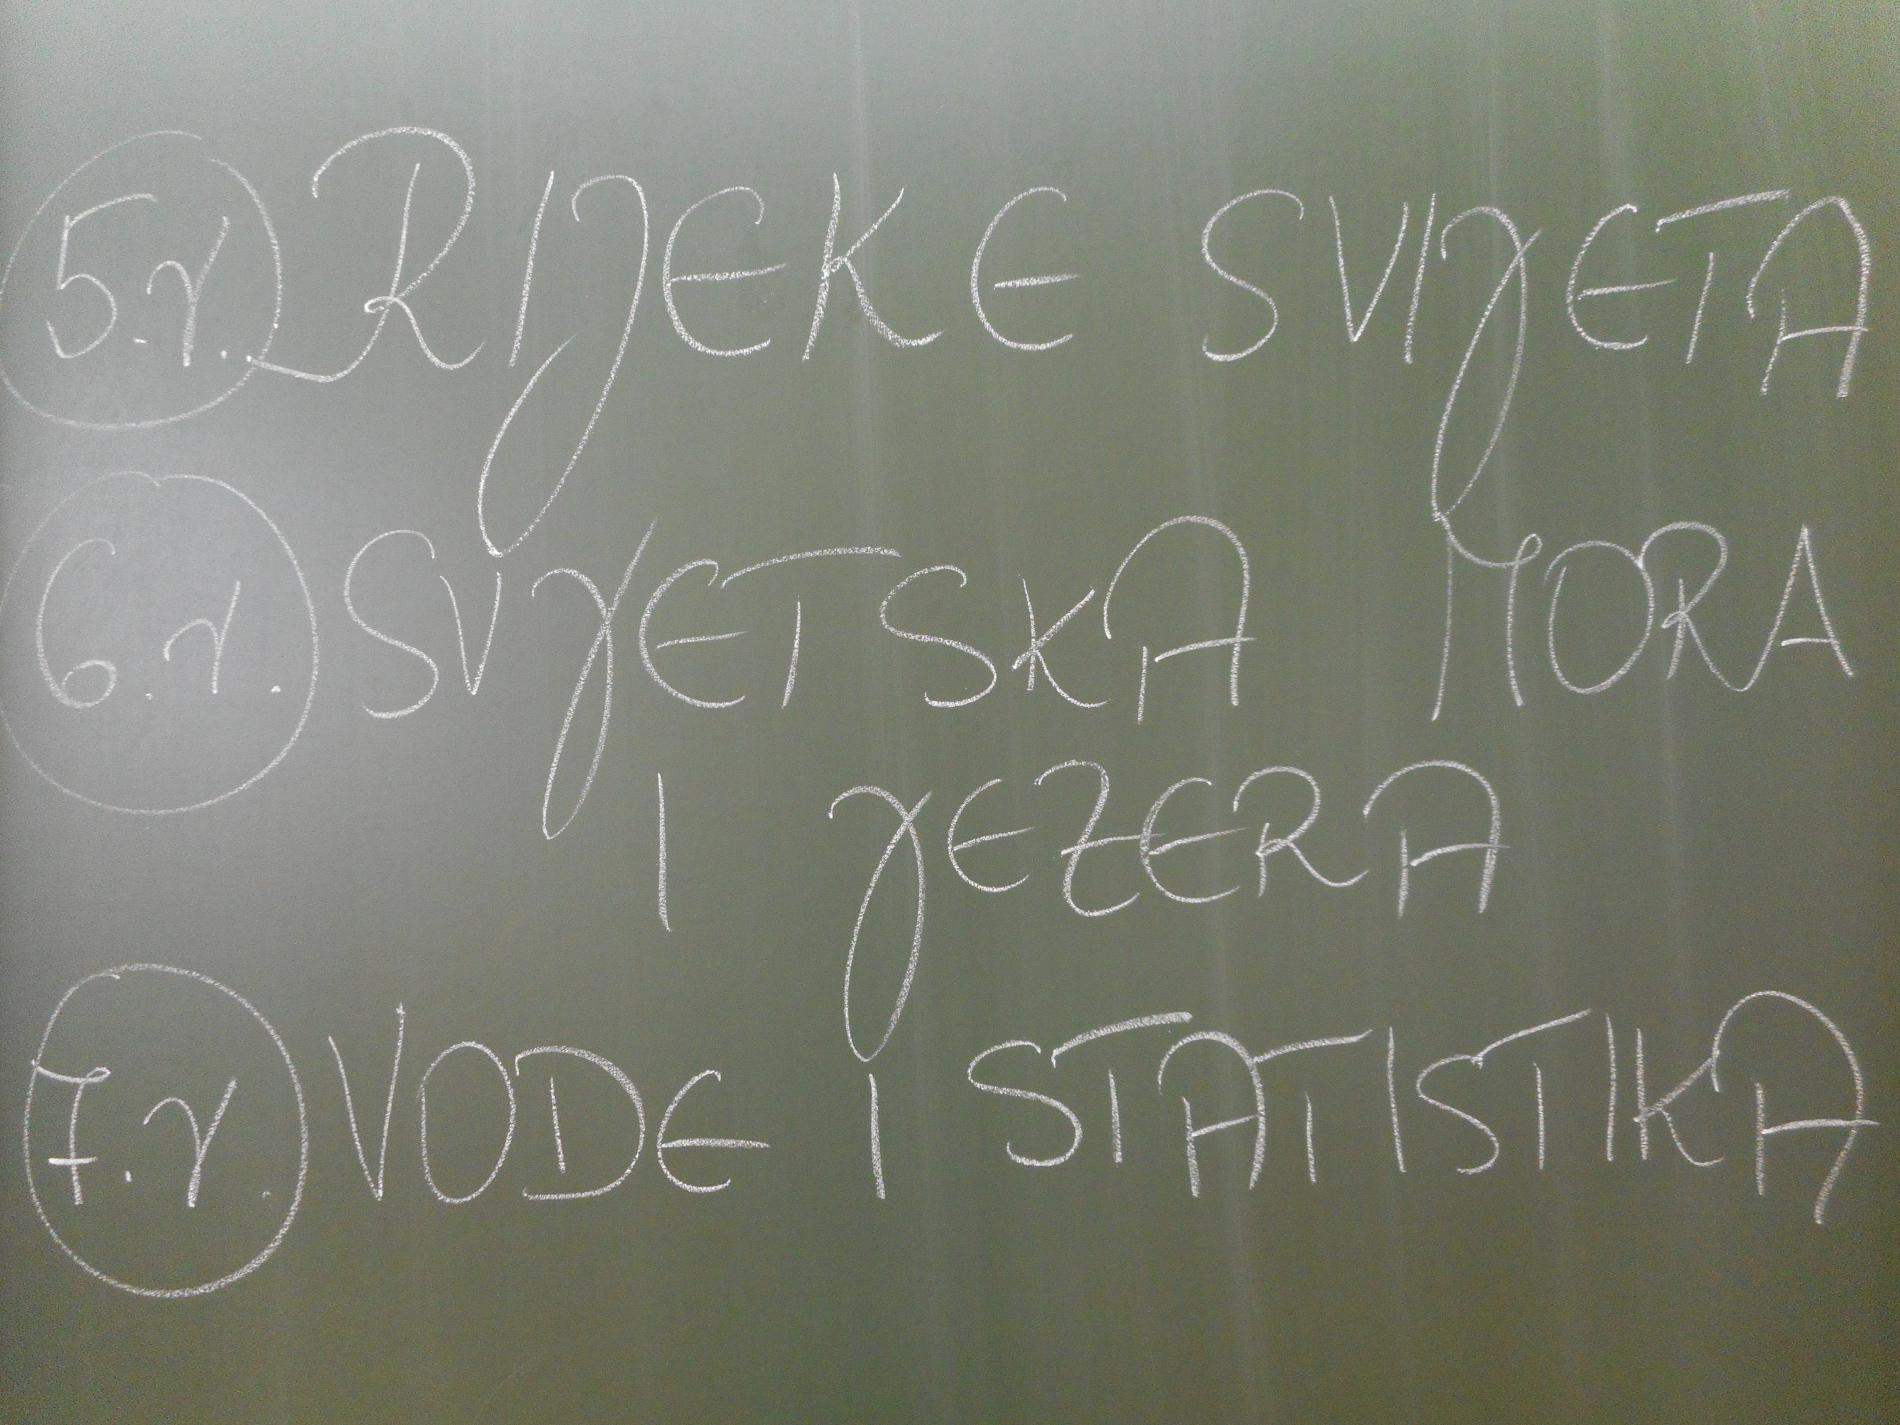 5.r. RIJEKE SVIJETA
6.r. SVJETSKA MORA
I JEZERA
7.r. VODE I STATISTIKA